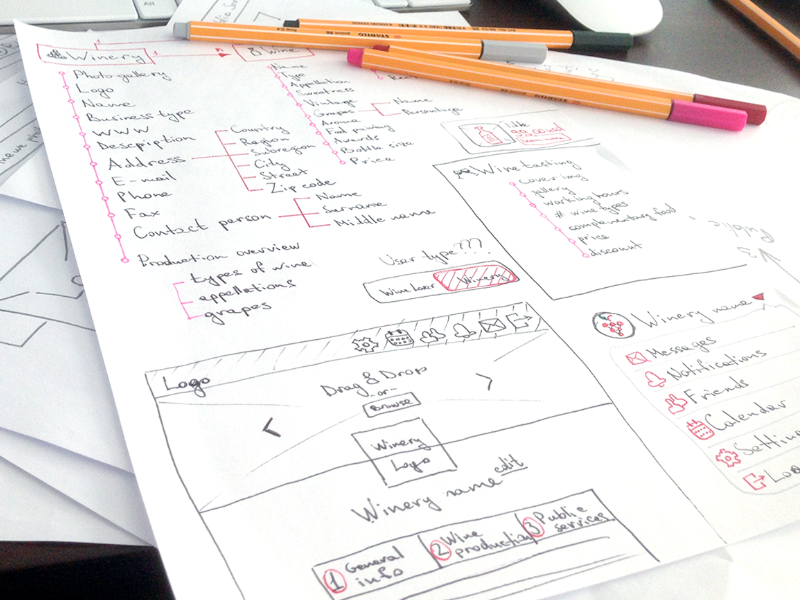 Winery
1
n
Wine
Photo gallery
Logo
Name
Business type
WWW
Description
Address
Country
Region
Subregion
City
Street
Zip code
E-mail
Phone
Fax
Contact person
Name
Sername
Middle name
Production overview
types of wine
appellations
grapes
Name
Type
Appellation
Sweetness
Vintage
Grapes
Name
Percentage
Aroma
Food pairing
Awards
Bottle size
Price
STABILO
STABILO
Wine tasting
cover img
gallery
working hours
# wine types
complementary food
price
discount
User type???
Wine lover
Winery
V3
Public
Logo
Drag & Drop
-or-
Browse
< >
Winery
Logo
Winery name edit
1 General info
2 Wine production
3 Public services
Winery name
Messages
Notifications
Friends
Calendar
Settin
Lo